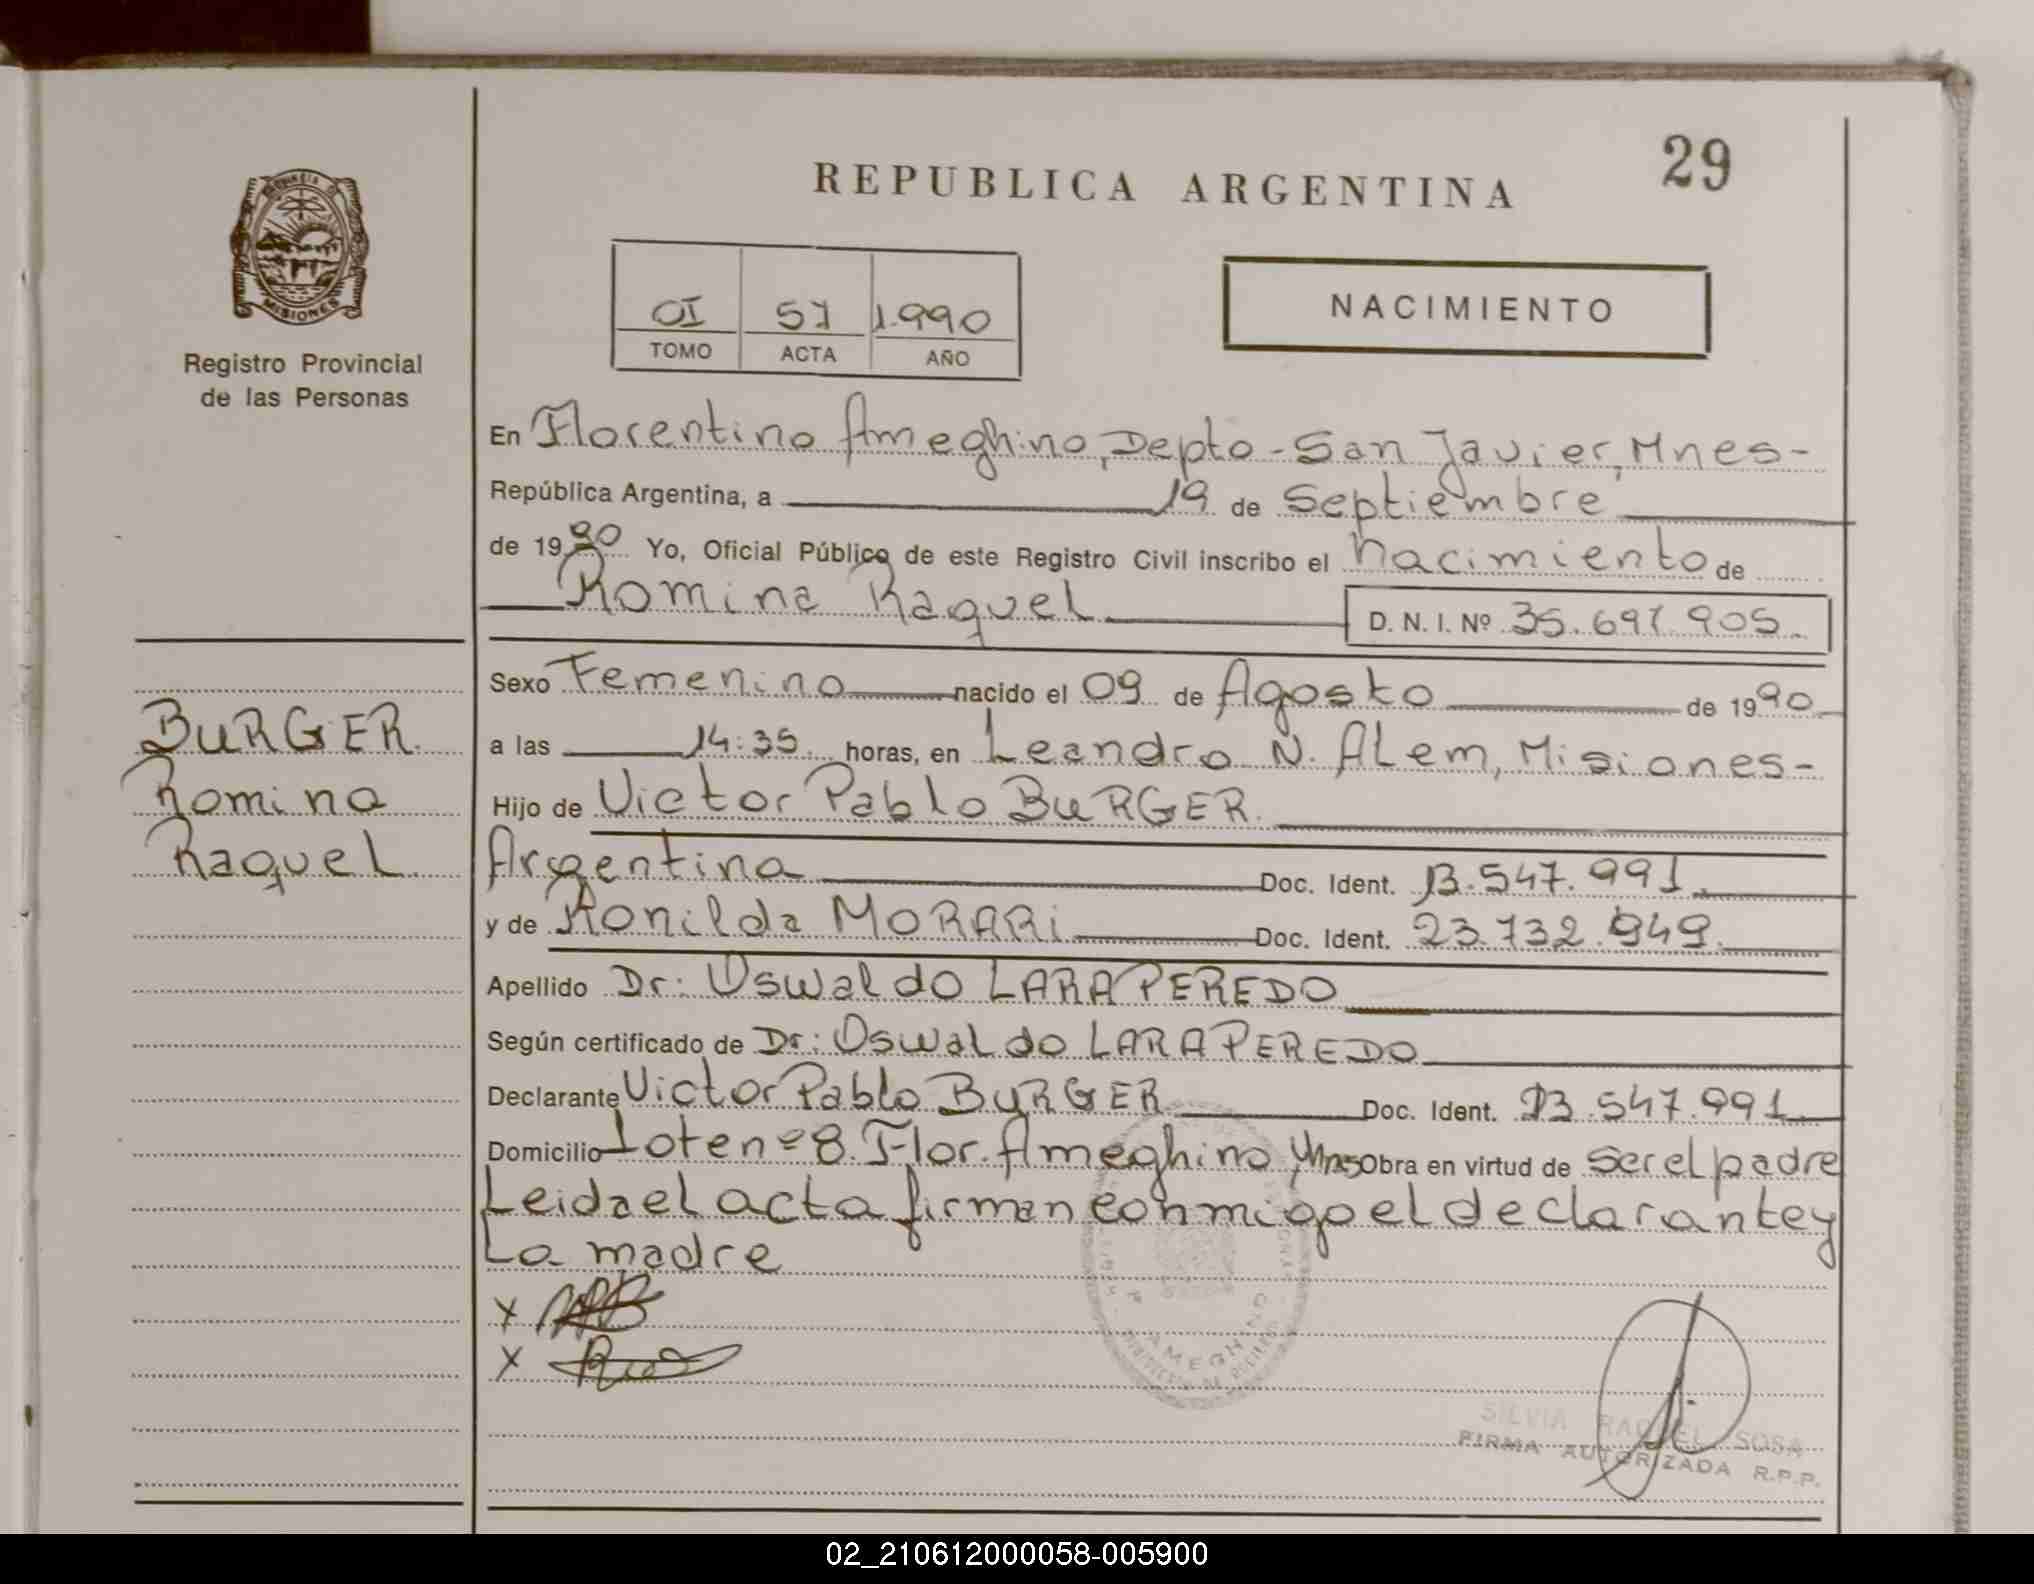 29
REPUBLICA ARGENTINA
PROVINCIA DE
MISIONES
Registro Provincial
de las Personas
OI 57 1.990
TOMO ACTA AÑO
NACIMIENTO
En Florentino Ameghino, Depto - San Javier, Mnes-
República Argentina, a 19 de Septiembre
de 1990 Yo, Oficial Público de este Registro Civil inscribo el nacimiento de
Romina Raquel D. N. I. Nº 35.697.905.
BURGER
Romina
Raquel
Sexo Femenino nacido el 09 de Agosto de 1990
a las 14:35 horas, en Leandro N. ALem, Misiones-
Hijo de Victor Pablo BURGER.
Argentina Doc. Ident. 13.547.991.
y de Ronilda MORARI Doc. Ident. 23.732.949.
Apellido Dr: Oswaldo LARA PEREDO
Según certificado de Dr: Oswaldo LARA PEREDO
Declarante Victor Pablo BURGER Doc. Ident. 13.547.991
Domicilio Lote nº 8. Flor. Ameghino, Mns Obra en virtud de ser el padre
Leida el acta firman conmigo el declarante y
La madre
X
X
AMEGHINO
SILVIA RAQUEL SOSA
FIRMA AUTORIZADA R.P.P.
02_210612000058-005900